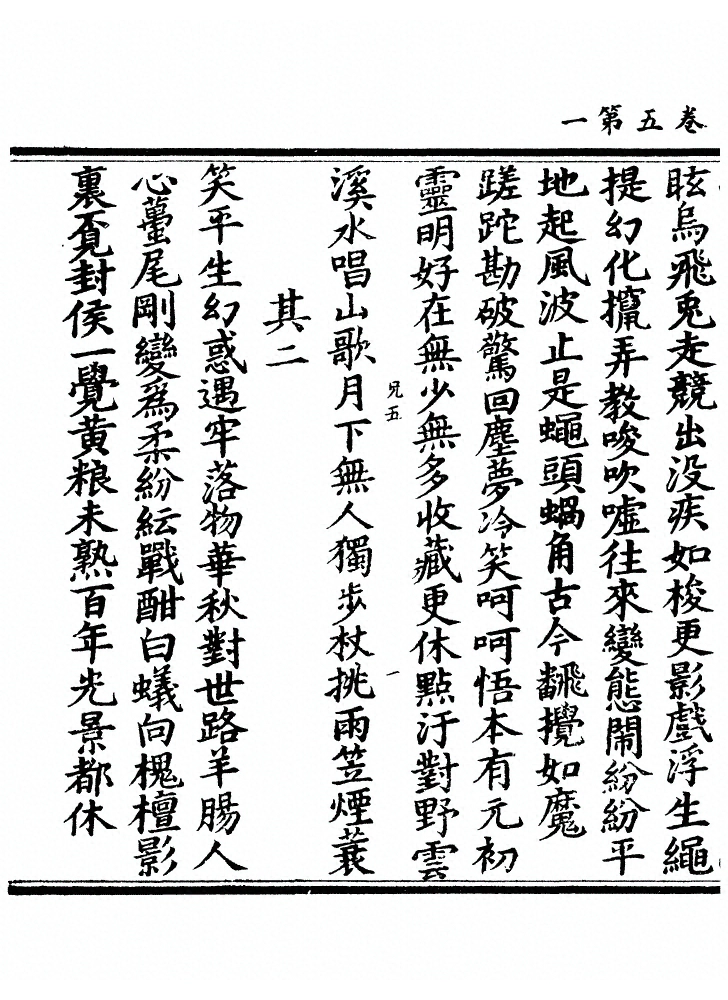 卷五第一
眩烏飛兎走競出没疾如梭更影戲浮生繩
提幻化攛弄教唆吹噓往來變態閙紛紛平
地起風波止是蠅頭蝸角古今飜攪如魔
蹉跎勘破驚回塵夢冷笑呵呵悟本有元初
靈明好在無少無多收藏更休點汙對野雲
兄五
一
溪水唱山歌月下無人獨步杖挑雨笠煙蓑
其二
笑平生幻惑遇牢落物華秋對世路羊腸人
心蠆尾剛變爲柔紛紜戰酣白蟻向槐檀影
裏覓封侯一覺黄粮未熟百年光景都休